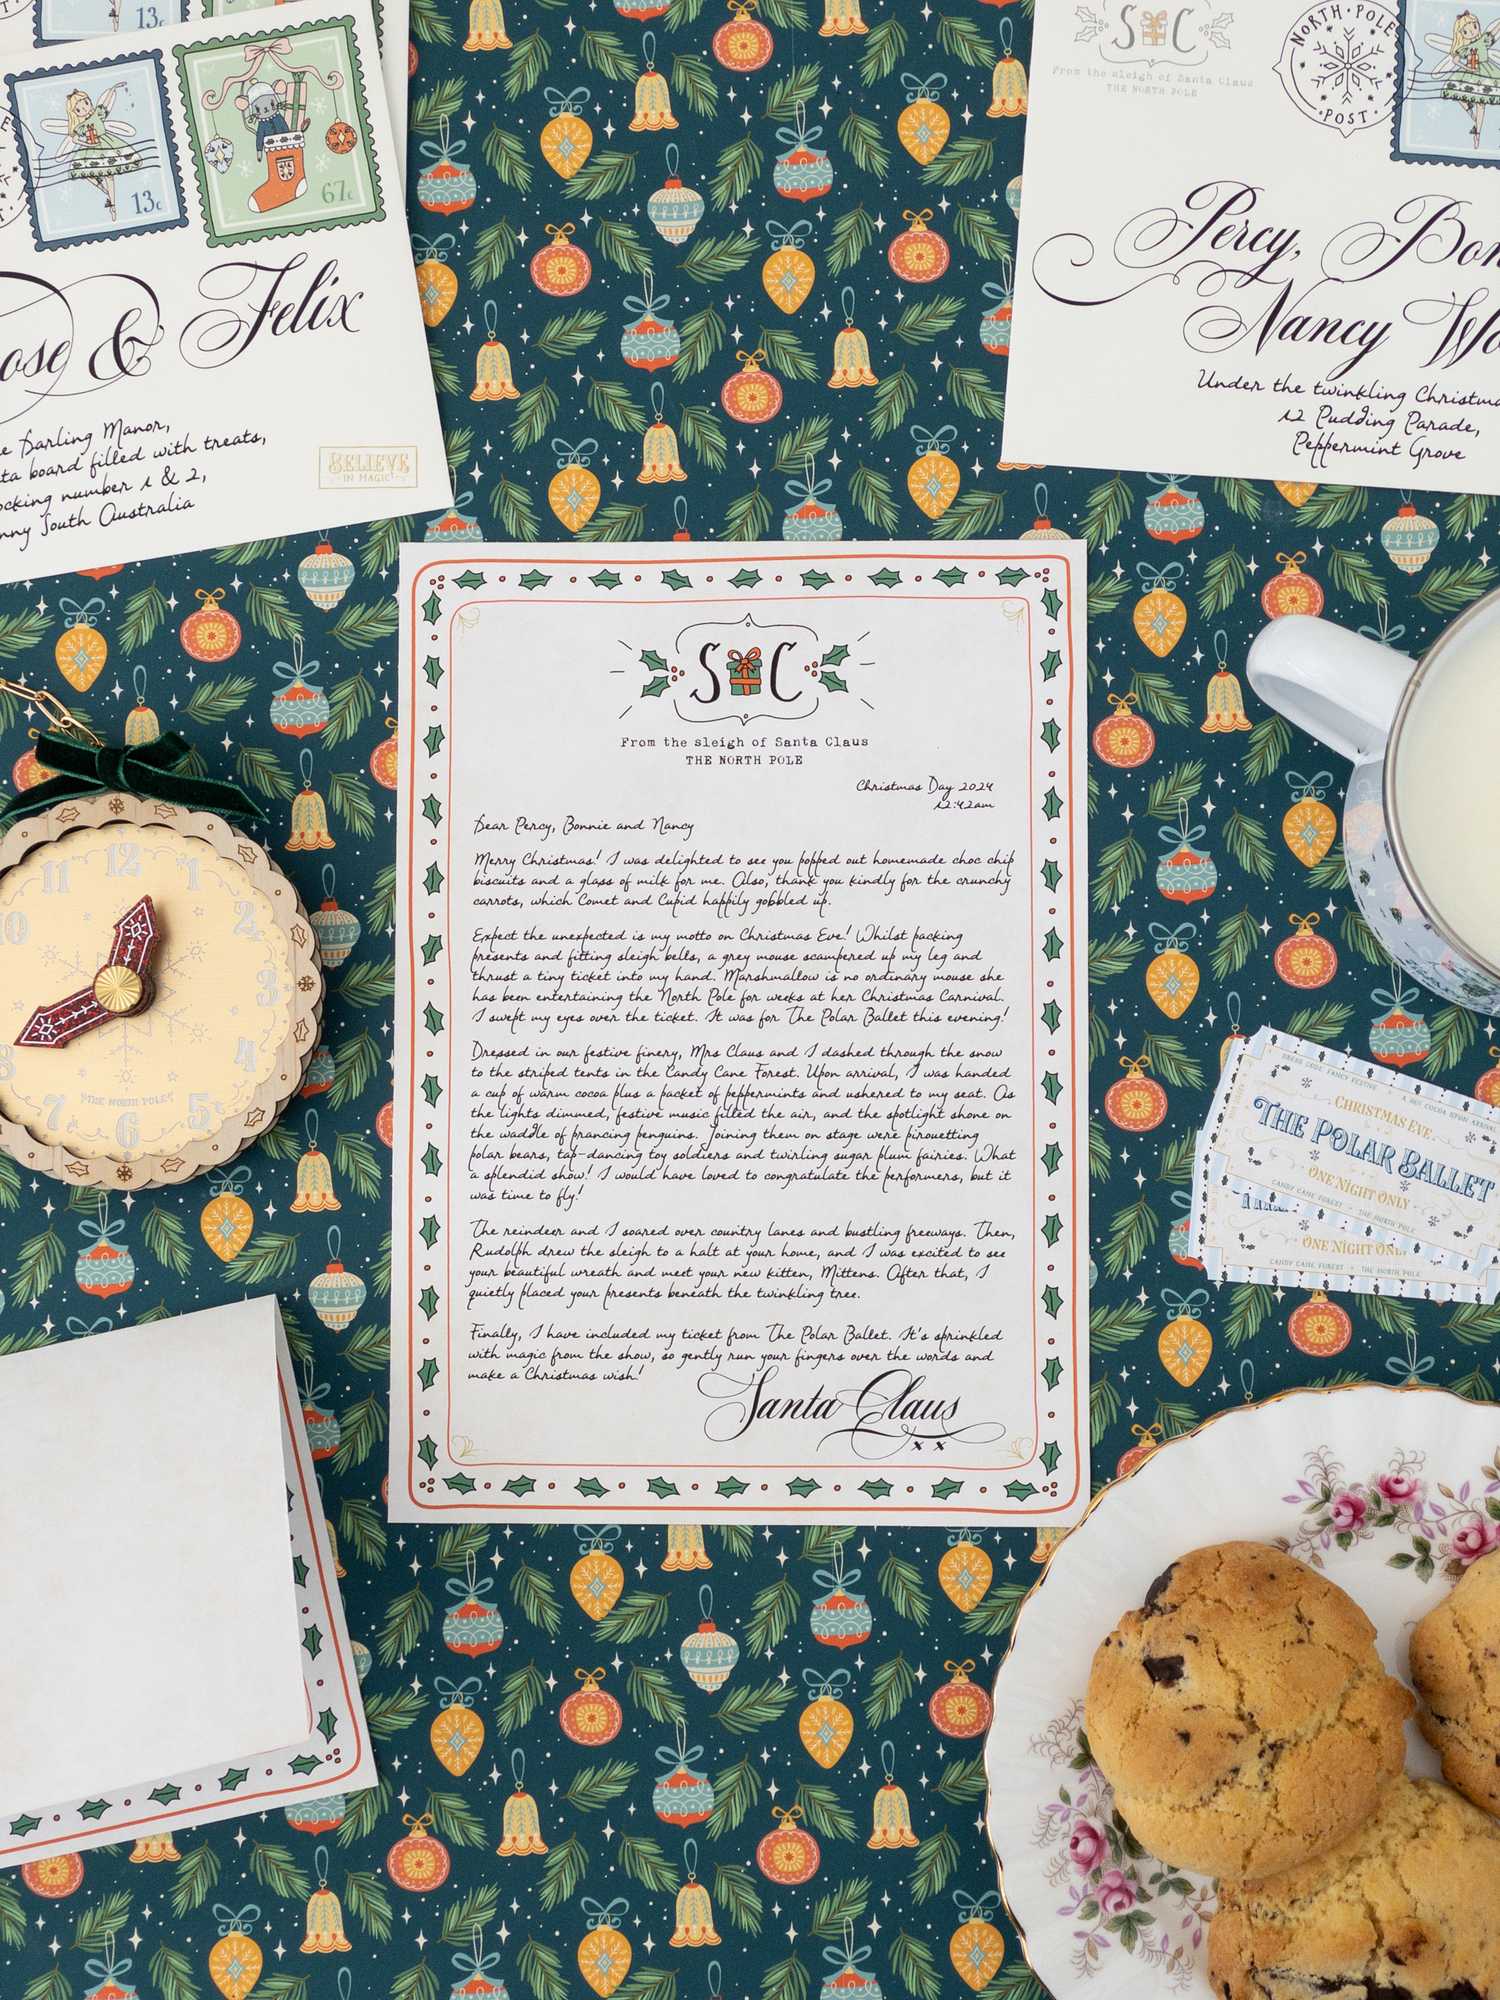 13c
13c
67c
& Felix
Darling Manor,
board filled with treats,
number 1 & 2,
South Australia
BELIEVE
IN MAGIC
S C
From the sleigh of Santa Claus
THE NORTH POLE
NORTH • POLE
• POST •
Percy,
Nancy
Under the twinkling
12 Pudding Parade,
Peppermint Grove
S C
From the sleigh of Santa Claus
THE NORTH POLE
Christmas Day 2024
12:42am
Dear Percy, Bonnie and Nancy
Merry Christmas! I was delighted to see you popped out homemade choc chip
biscuits and a glass of milk for me. Also, thank you kindly for the crunchy
carrots, which Comet and Cupid happily gobbled up.
Expect the unexpected is my motto on Christmas Eve! Whilst packing
presents and fitting sleigh bells, a grey mouse scampered up my leg and
thrust a tiny ticket into my hand. Marshmallow is no ordinary mouse she
has been entertaining the North Pole for weeks at her Christmas Carnival.
I swept my eyes over the ticket. It was for The Polar Ballet this evening!
Dressed in our festive finery, Mrs Claus and I dashed through the snow
to the striped tents in the Candy Cane Forest. Upon arrival, I was handed
a cup of warm cocoa plus a packet of peppermints and ushered to my seat. As
the lights dimmed, festive music filled the air, and the spotlight shone on
the waddle of prancing penguins. Joining them on stage were pirouetting
polar bears, tap-dancing toy soldiers and twirling sugar plum fairies. What
a splendid show! I would have loved to congratulate the performers, but it
was time to fly!
The reindeer and I soared over country lanes and bustling freeways. Then,
Rudolph drew the sleigh to a halt at your home, and I was excited to see
your beautiful wreath and meet your new kitten, Mittens. After that, I
quietly placed your presents beneath the twinkling tree.
Finally, I have included my ticket from The Polar Ballet. It's sprinkled
with magic from the show, so gently run your fingers over the words and
make a Christmas wish!
Santa Claus
x x
11 12
10 2
3
8 4
7 6 5
THE NORTH POLE
DRESS CODE: FANCY FESTIVE
A HOT COCOA UPON ARRIVAL
CHRISTMAS EVE
THE POLAR BALLET
ONE NIGHT ONLY
CANDY CANE FOREST • THE NORTH POLE
ONE NIGHT ONLY
CANDY CANE FOREST • THE NORTH POLE